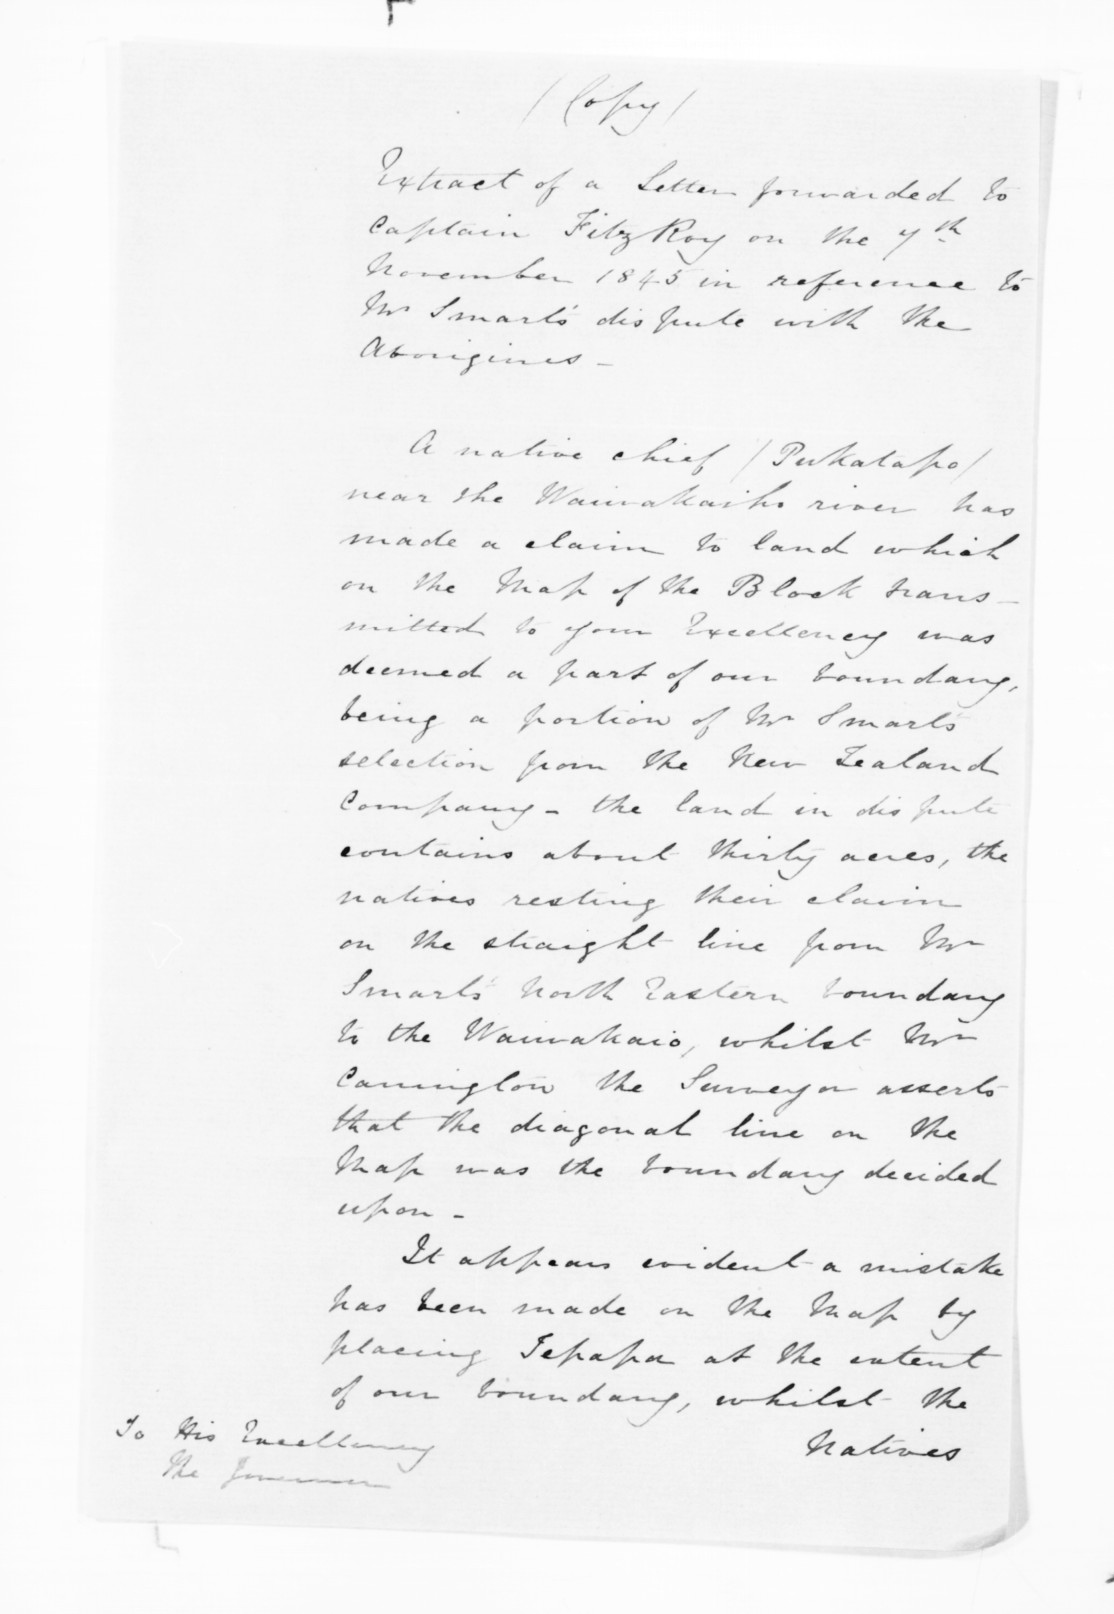 /Copy/
Extract of a Letter forwarded to
Captain FitzRoy on the 7th
November 1845 in reference to
Mr Smart's dispute with the
Aborigines -
A native chief /Pukatapo/
near the Waiwakaiho river has
made a claim to land which
on the Map of the Block trans-
mitted to your Excellency was
deemed a part of our boundary,
being a portion of Mr Smart's
selection from the New Zealand
Company - the land in dispute
contains about thirty acres, the
natives resting their claim
on the straight line from Mr
Smart's North Eastern boundary
to the Waiwakaio, whilst Mr
Carrington the Surveyor asserts
that the diagonal line on the
Map was the boundary decided
upon -
It appears evident a mistake
has been made on the Map by
placing Tepapa at the extent
of our boundary, whilst the
Natives
To His Excellency
the Governor